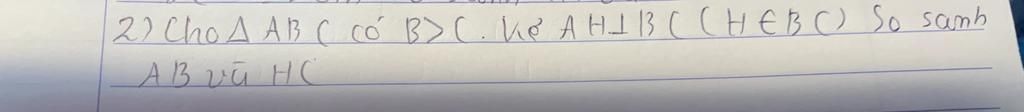 2) Cho Δ ABC có B>C. Kẻ AH⊥BC (H∈BC) So sanh
AB và HC